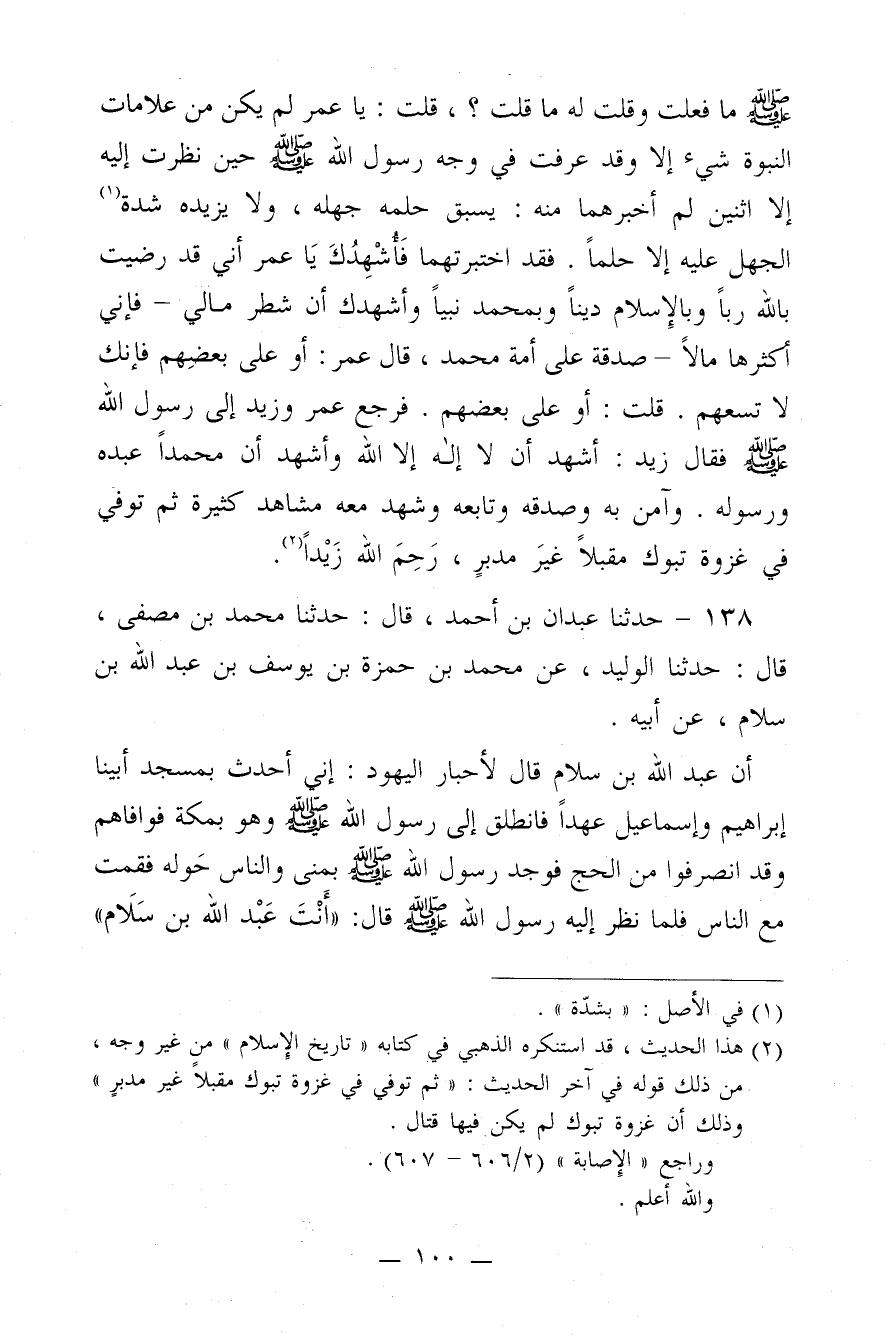 ﷺ ما فعلت وقلت له ما قلت ؟ ، قلت : يا عمر لم يكن من علامات
النبوة شيء إلا وقد عرفت في وجه رسول الله ﷺ حين نظرت إليه
إلا اثنين لم أخبرهما منه : يسبق حلمه جهله ، ولا يزيده شدة(١)
الجهل عليه إلا حلماً . فقد اختبرتهما فَأُشْهِدُكَ يَا عمر أني قد رضيت
بالله رباً وبالإسلام ديناً وبمحمد نبياً وأشهدك أن شطر مالي – فإني
أكثرها مالاً – صدقة على أمة محمد ، قال عمر : أو على بعضهم فإنك
لا تسعهم . قلت : أو على بعضهم . فرجع عمر وزيد إلى رسول الله
ﷺ فقال زيد : أشهد أن لا إلٰه إلا الله وأشهد أن محمداً عبده
ورسوله . وآمن به وصدقه وتابعه وشهد معه مشاهد كثيرة ثم توفي
في غزوة تبوك مقبلاً غيرَ مدبرٍ ، رَحِمَ الله زَيْداً(٢).
١٣٨ – حدثنا عبدان بن أحمد ، قال : حدثنا محمد بن مصفى ،
قال : حدثنا الوليد ، عن محمد بن حمزة بن يوسف بن عبد الله بن
سلام ، عن أبيه .
أن عبد الله بن سلام قال لأحبار اليهود : إني أحدث بمسجد أبينا
إبراهيم وإسماعيل عهداً فانطلق إلى رسول الله ﷺ وهو بمكة فوافاهم
وقد انصرفوا من الحج فوجد رسول الله ﷺ بمنى والناس حَوله فقمت
مع الناس فلما نظر إليه رسول الله ﷺ قال: «أَنْتَ عَبْد الله بن سَلَام»
(١) في الأصل : « بشدّة » .
(٢) هذا الحديث ، قد استنكره الذهبي في كتابه « تاريخ الإسلام » من غير وجه ،
من ذلك قوله في آخر الحديث : « ثم توفي في غزوة تبوك مقبلاً غير مدبرٍ »
وذلك أن غزوة تبوك لم يكن فيها قتال .
وراجع « الإصابة » (٦٠٦/٢ – ٦٠٧) .
والله أعلم .
— ١٠٠ —